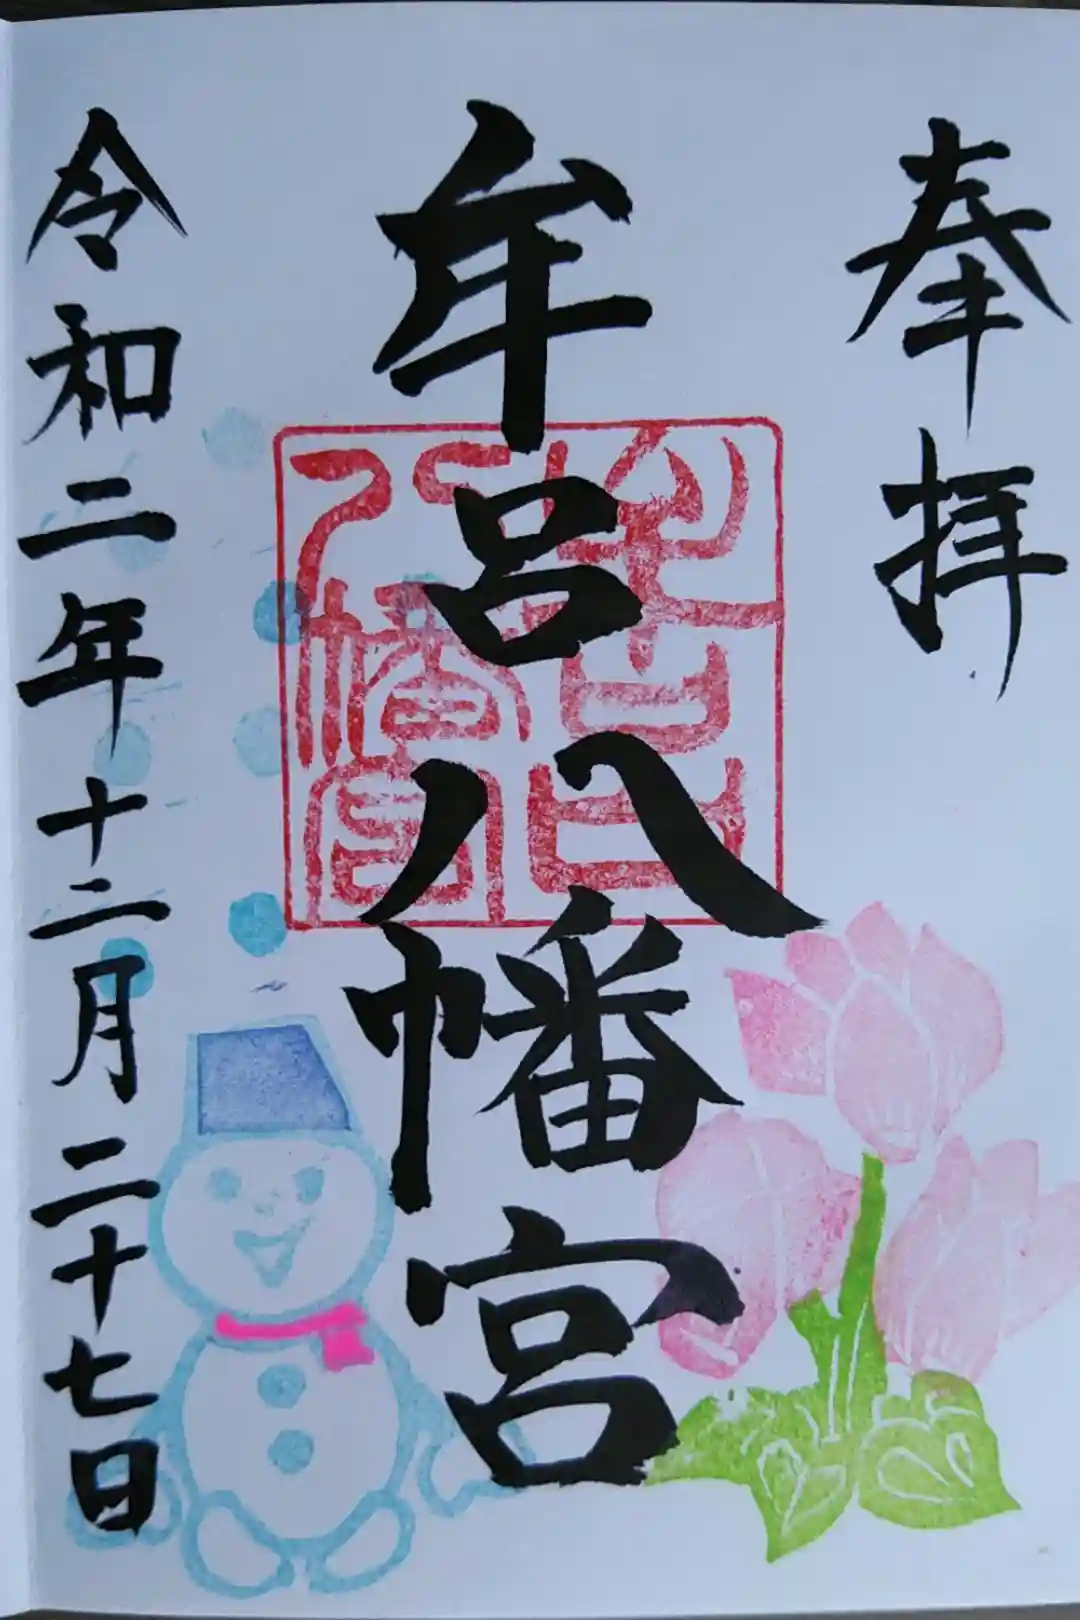 奉拝
牟呂八幡宮
令和二年十二月二十七日